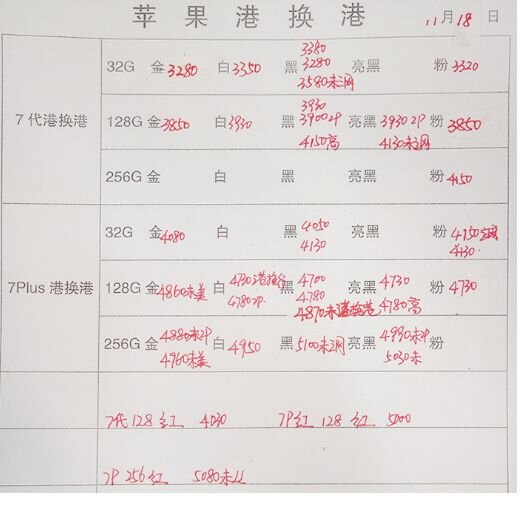 苹果港换港 11月18日
3380
32G 金3280 白3350 黑3280 亮黑 粉3320
3580未3网
3930
7代港换港 128G 金3850 白3930 黑3900ZP 亮黑3930ZP 粉3850
4150高 4130未3网
256G 金 白 黑 亮黑 粉4150
32G 金4080 白 黑4050 亮黑 粉4150
4130 4130
7Plus港换港 128G 金4860未美 白4730港换 黑4700 亮黑4730 粉4730
4780ZP 4780 4780高
4870未港换港
256G 金4880未ZP 白4950 黑5100未3网 亮黑4990未ZP 粉
4960未美 5030未
7代 128 红 4030 7P红 128 红 5000
7P 256 红 5080未